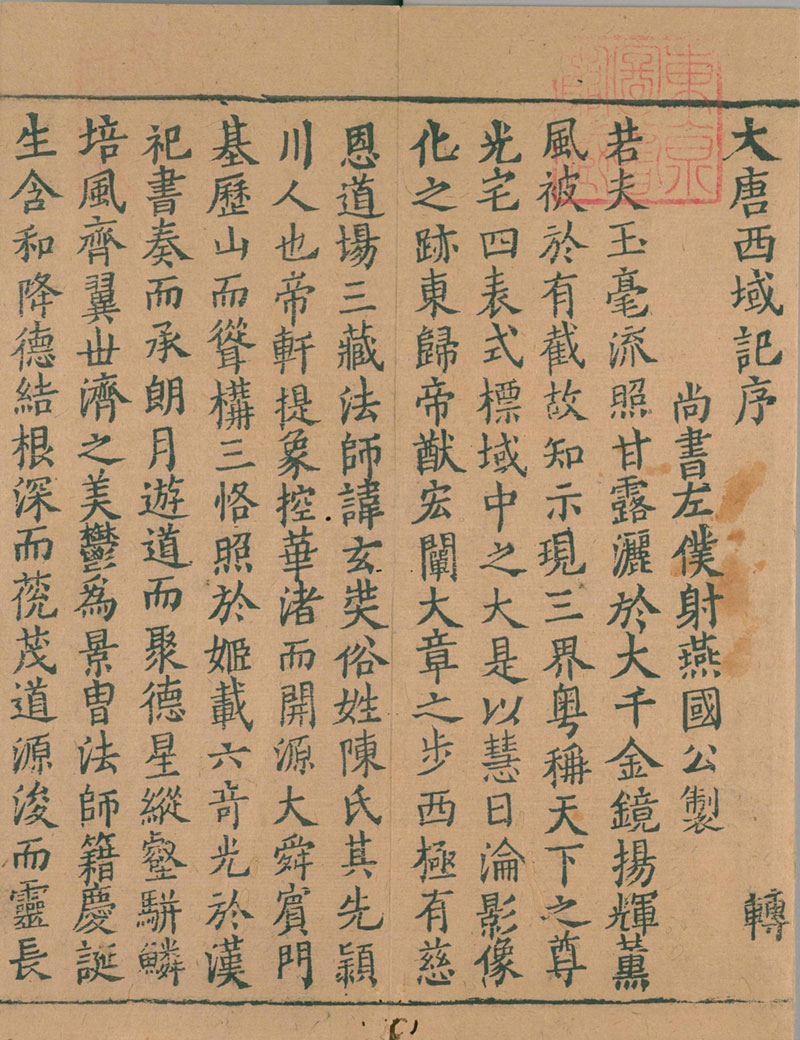 大唐西域記序 轉
尚書左僕射燕國公製
若夫玉毫流照甘露灑於大千金鏡揚輝薰
風被於有截故知示現三界粤稱天下之尊
光宅四表式標域中之大是以慧日淪影像
化之跡東歸帝猷宏闡大章之步西極有慈
恩道場三藏法師諱玄奘俗姓陳氏其先潁
川人也帝軒提象控華渚而開源大舜賓門
基歷山而聳構三恪照於姬載六奇光於漢
祀書奏而承朗月遊道而聚德星縱壑駢鱗
培風齊翼世濟之美鬱為景胄法師籍慶誕
生含和降德結根深而莌茂道源浚而靈長
東京